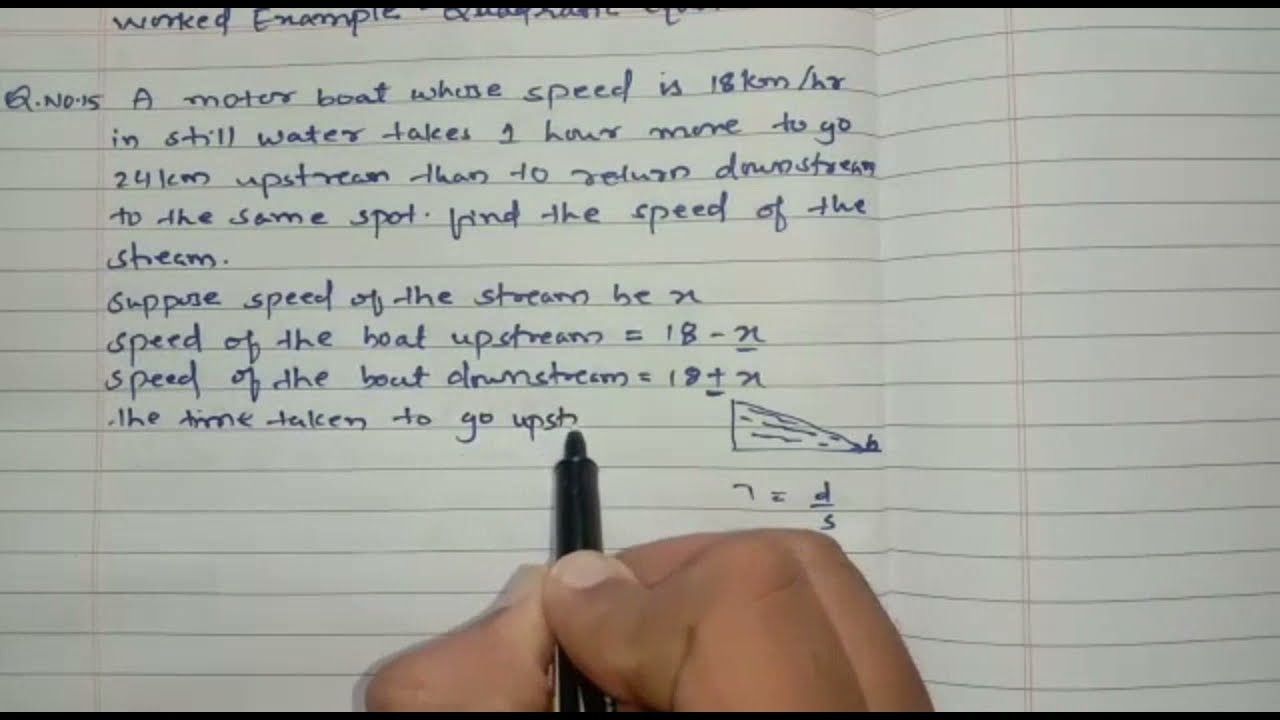 Worked Example Quadratic
Q.NO.15 A motor boat whose speed is 18km/hr
in still water takes 1 hour more to go
24km upstream than to return downstream
to the same spot. find the speed of the
stream.
suppose speed of the stream be x
speed of the boat upstream = 18 - x
speed of the boat downstream = 18 + x
the time taken to go upst
b
= d/s